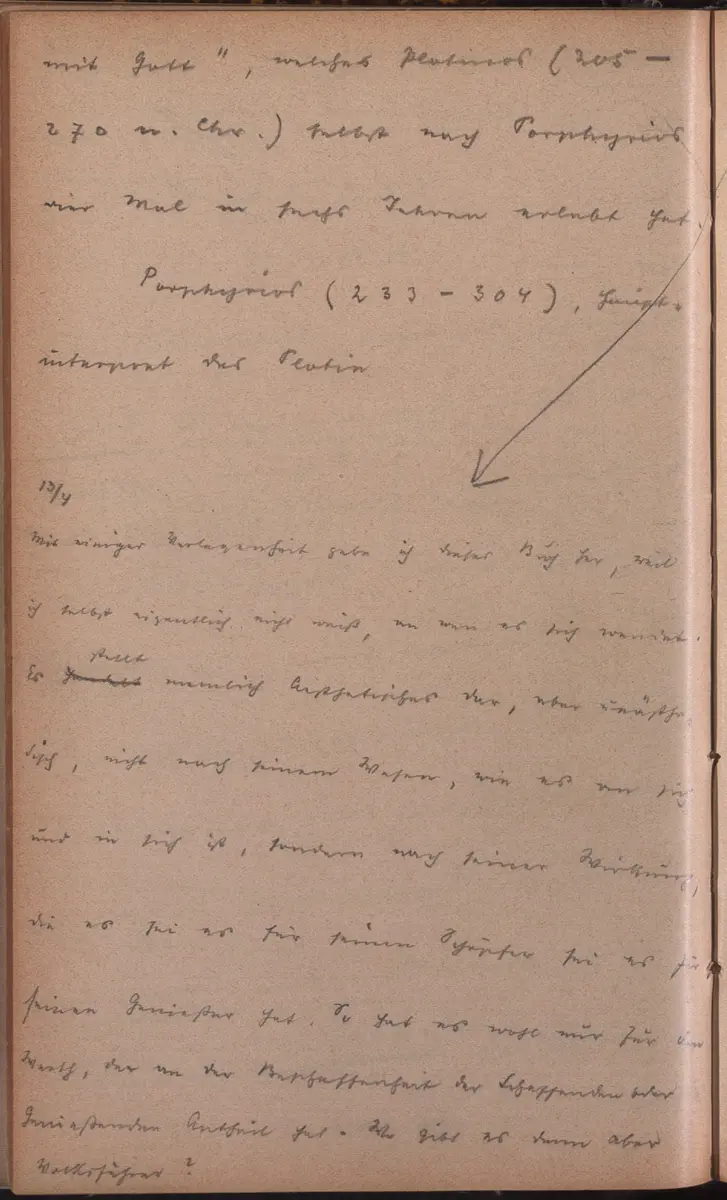 mit Gott", welches Plotinos (205 –
270 n. Chr.) selbst nach Porphyrios
vier Mal in sechs Jahren erlebt hat.
Porphyrios (233 – 304), Haupt-
interpret des Plotin
13/4
Mit einiger Verlegenheit gebe ich dieses Buch her, weil
ich selbst eigentlich nicht weiß, an wen es sich wendet.
stellt
Es handelt nemlich Aesthetisches dar, aber unästhe
tisch, nicht nach seinem Wesen, wie es an sich
und in sich ist, sondern nach seiner Wirkung,
die es sei es für seinen Schöpfer sei es für
seinen Genießer hat. So hat es wohl nur für den
Werth, der an der Beschaffenheit der Schaffenden oder
Genießenden Antheil hat. Wo gibt es denn aber
Volksführer?